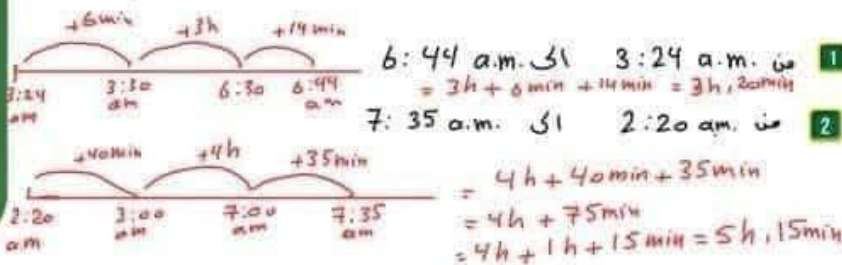 +6min +3h +14 min
3:24 am 3:30 am 6:30 6:44 am
1 من 3:24 a.m. الى 6:44 a.m.
= 3h + 6 min + 14 min = 3h, 20min
2 من 2:20 am. الى 7:35 a.m.
+40min +4h +35min
2:20 am 3:00 am 7:00 am 7:35 am
= 4h + 40min + 35min
= 4h + 75min
= 4h + 1h + 15 min = 5h, 15min